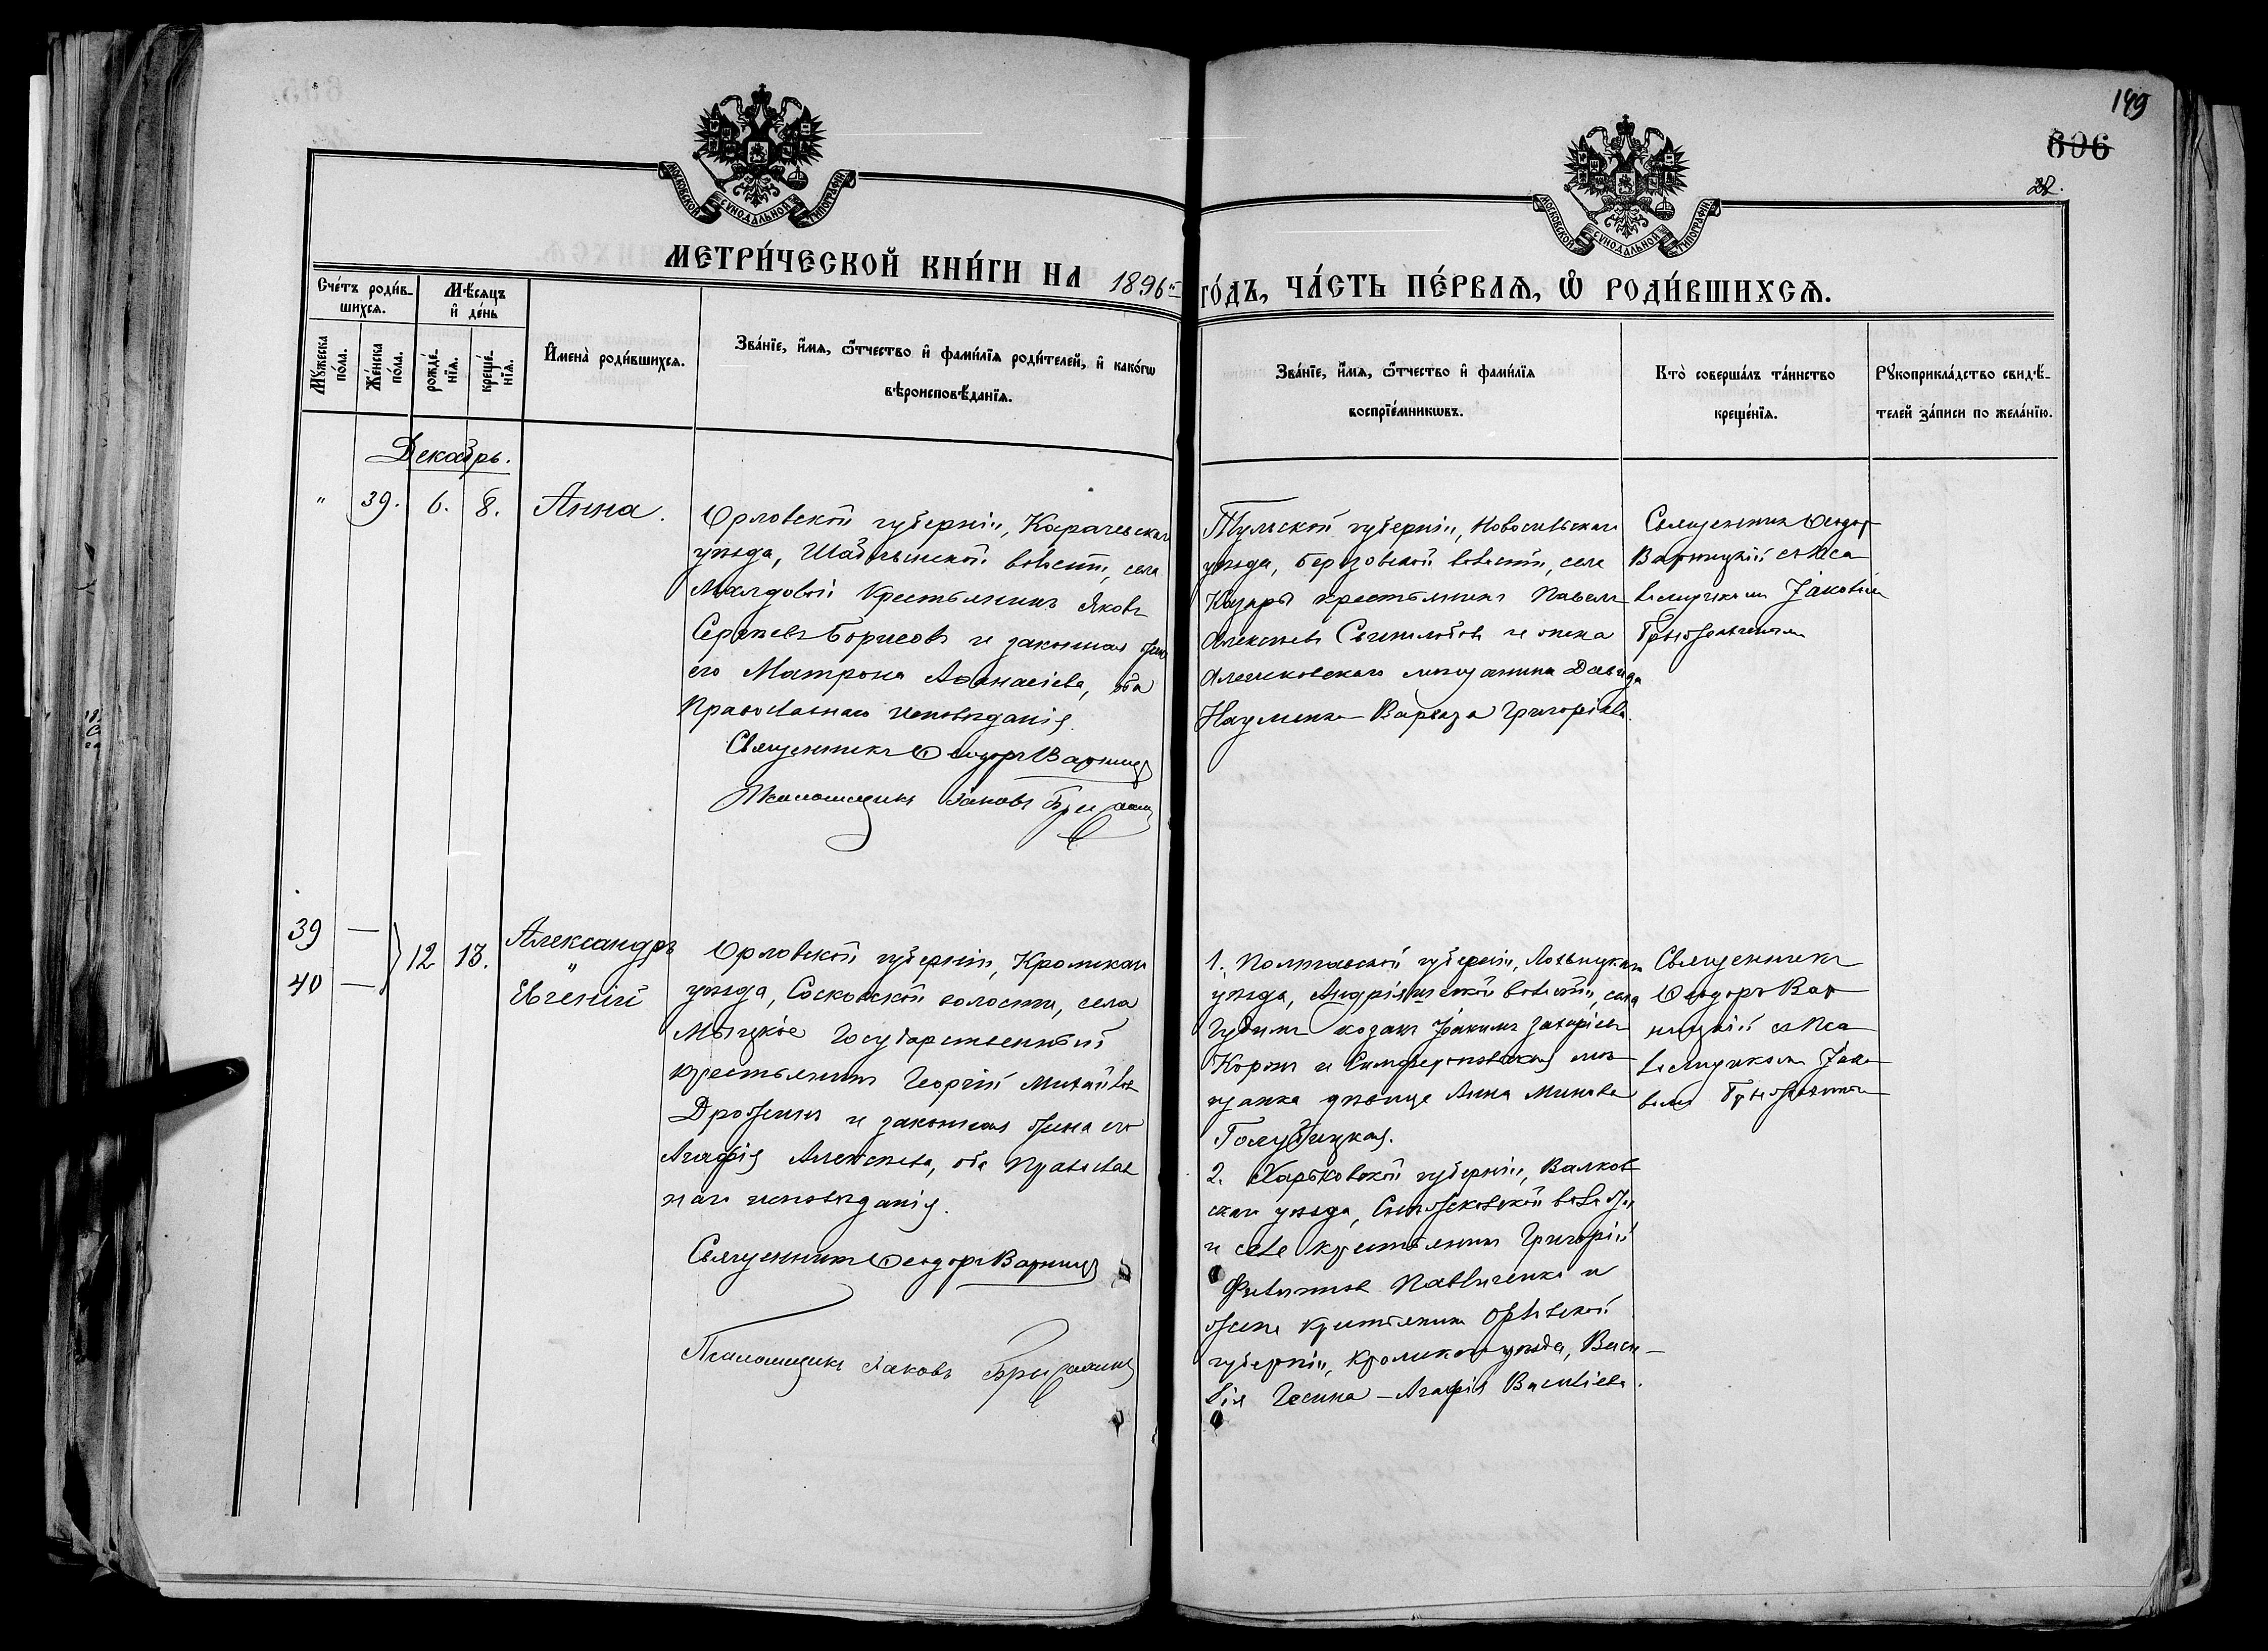 149
606
22.
МОСКОВСКОЙ СѴНОДАЛЬНОЙ ТИПОГРАФІИ
МОСКОВСКОЙ СѴНОДАЛЬНОЙ ТИПОГРАФІИ
МЕТРИ́ЧЕСКОЙ КНИ́ГИ НА 1896й
ГО́ДЪ, ЧА́СТЬ ПЕ́РВАѦ, Ѡ РОДИ́ВШИХСѦ.
Сче́тъ роди́в-
шихсѧ.
Мѣ́сѧцъ
и де́нь
Мꙋ́жеска по́ла.
Же́нска по́ла.
рожде́-
нїѧ.
креще́-
нїѧ.
Имена̀ роди́вшихсѧ.
Зва́нїе, и́мѧ, ѻ҆́тчество и фами́лїѧ роди́телей, и како́гѡ
вѣроисповѣ́данїѧ.
Зва́нїе, и́мѧ, ѻ҆́тчество и фами́лїѧ
воспрїе́мникѡвъ.
Кто̀ соверша́лъ та́инство
креще́нїѧ.
Рꙋкоприкла́дство свидѣ́-
телей за́писи по жела́нїю.
Декабрь.
" 39. 6. 8. Анна.
Орловской губерніи, Карачевскаго
уѣзда, волости, села
Крестьянинъ Яковъ
Сергѣевъ Борисовъ и законная жена
его Матрона Аѳанасіева, оба
Православнаго исповѣданія.
Священникъ Ѳеодоръ Варницкій
Псаломщикъ Іаковъ
Тульской губерніи, Новосильскаго
уѣзда, Березовской волости, села
крестьянинъ Павелъ
Алексѣевъ и жена
Алешковскаго мѣщанина Давида
Науменка – Варвара Григоріева.
Священникъ Ѳеодоръ
Варницкій съ Пса
ломщикомъ Іаковомъ
39 —
40 —
12 13.
Александръ
"
Евгеній
Орловской губерніи, Кромскаго
уѣзда, Сосковской волости, села
Мыцкое Государственный
крестьянинъ Георгій Михайловъ
Дрожжинъ и законная жена его
Агафія Алексѣева, оба Православ
наго исповѣданія.
Священникъ Ѳеодоръ Варницкій
Псаломщикъ Іаковъ
1. Полтавской губерніи, Лохвицкаго
уѣзда, волости, села
козакъ Іоакимъ Захаріевъ
Корж и Симферопольская мѣ
щанка дѣвица Анна Минова
Голубицкая.
2. Харьковской губерніи, Валков
скаго уѣзда, волости
и села крестьянинъ Григорій
Филипповъ Павличенко и
жена крестьянина Орловской
губерніи, Кромскаго уѣзда, Васи-
лія – Агафія Василіева.
Священникъ
Ѳеодоръ Вар
ницкій съ Пса
ломщикомъ Іако
вомъ